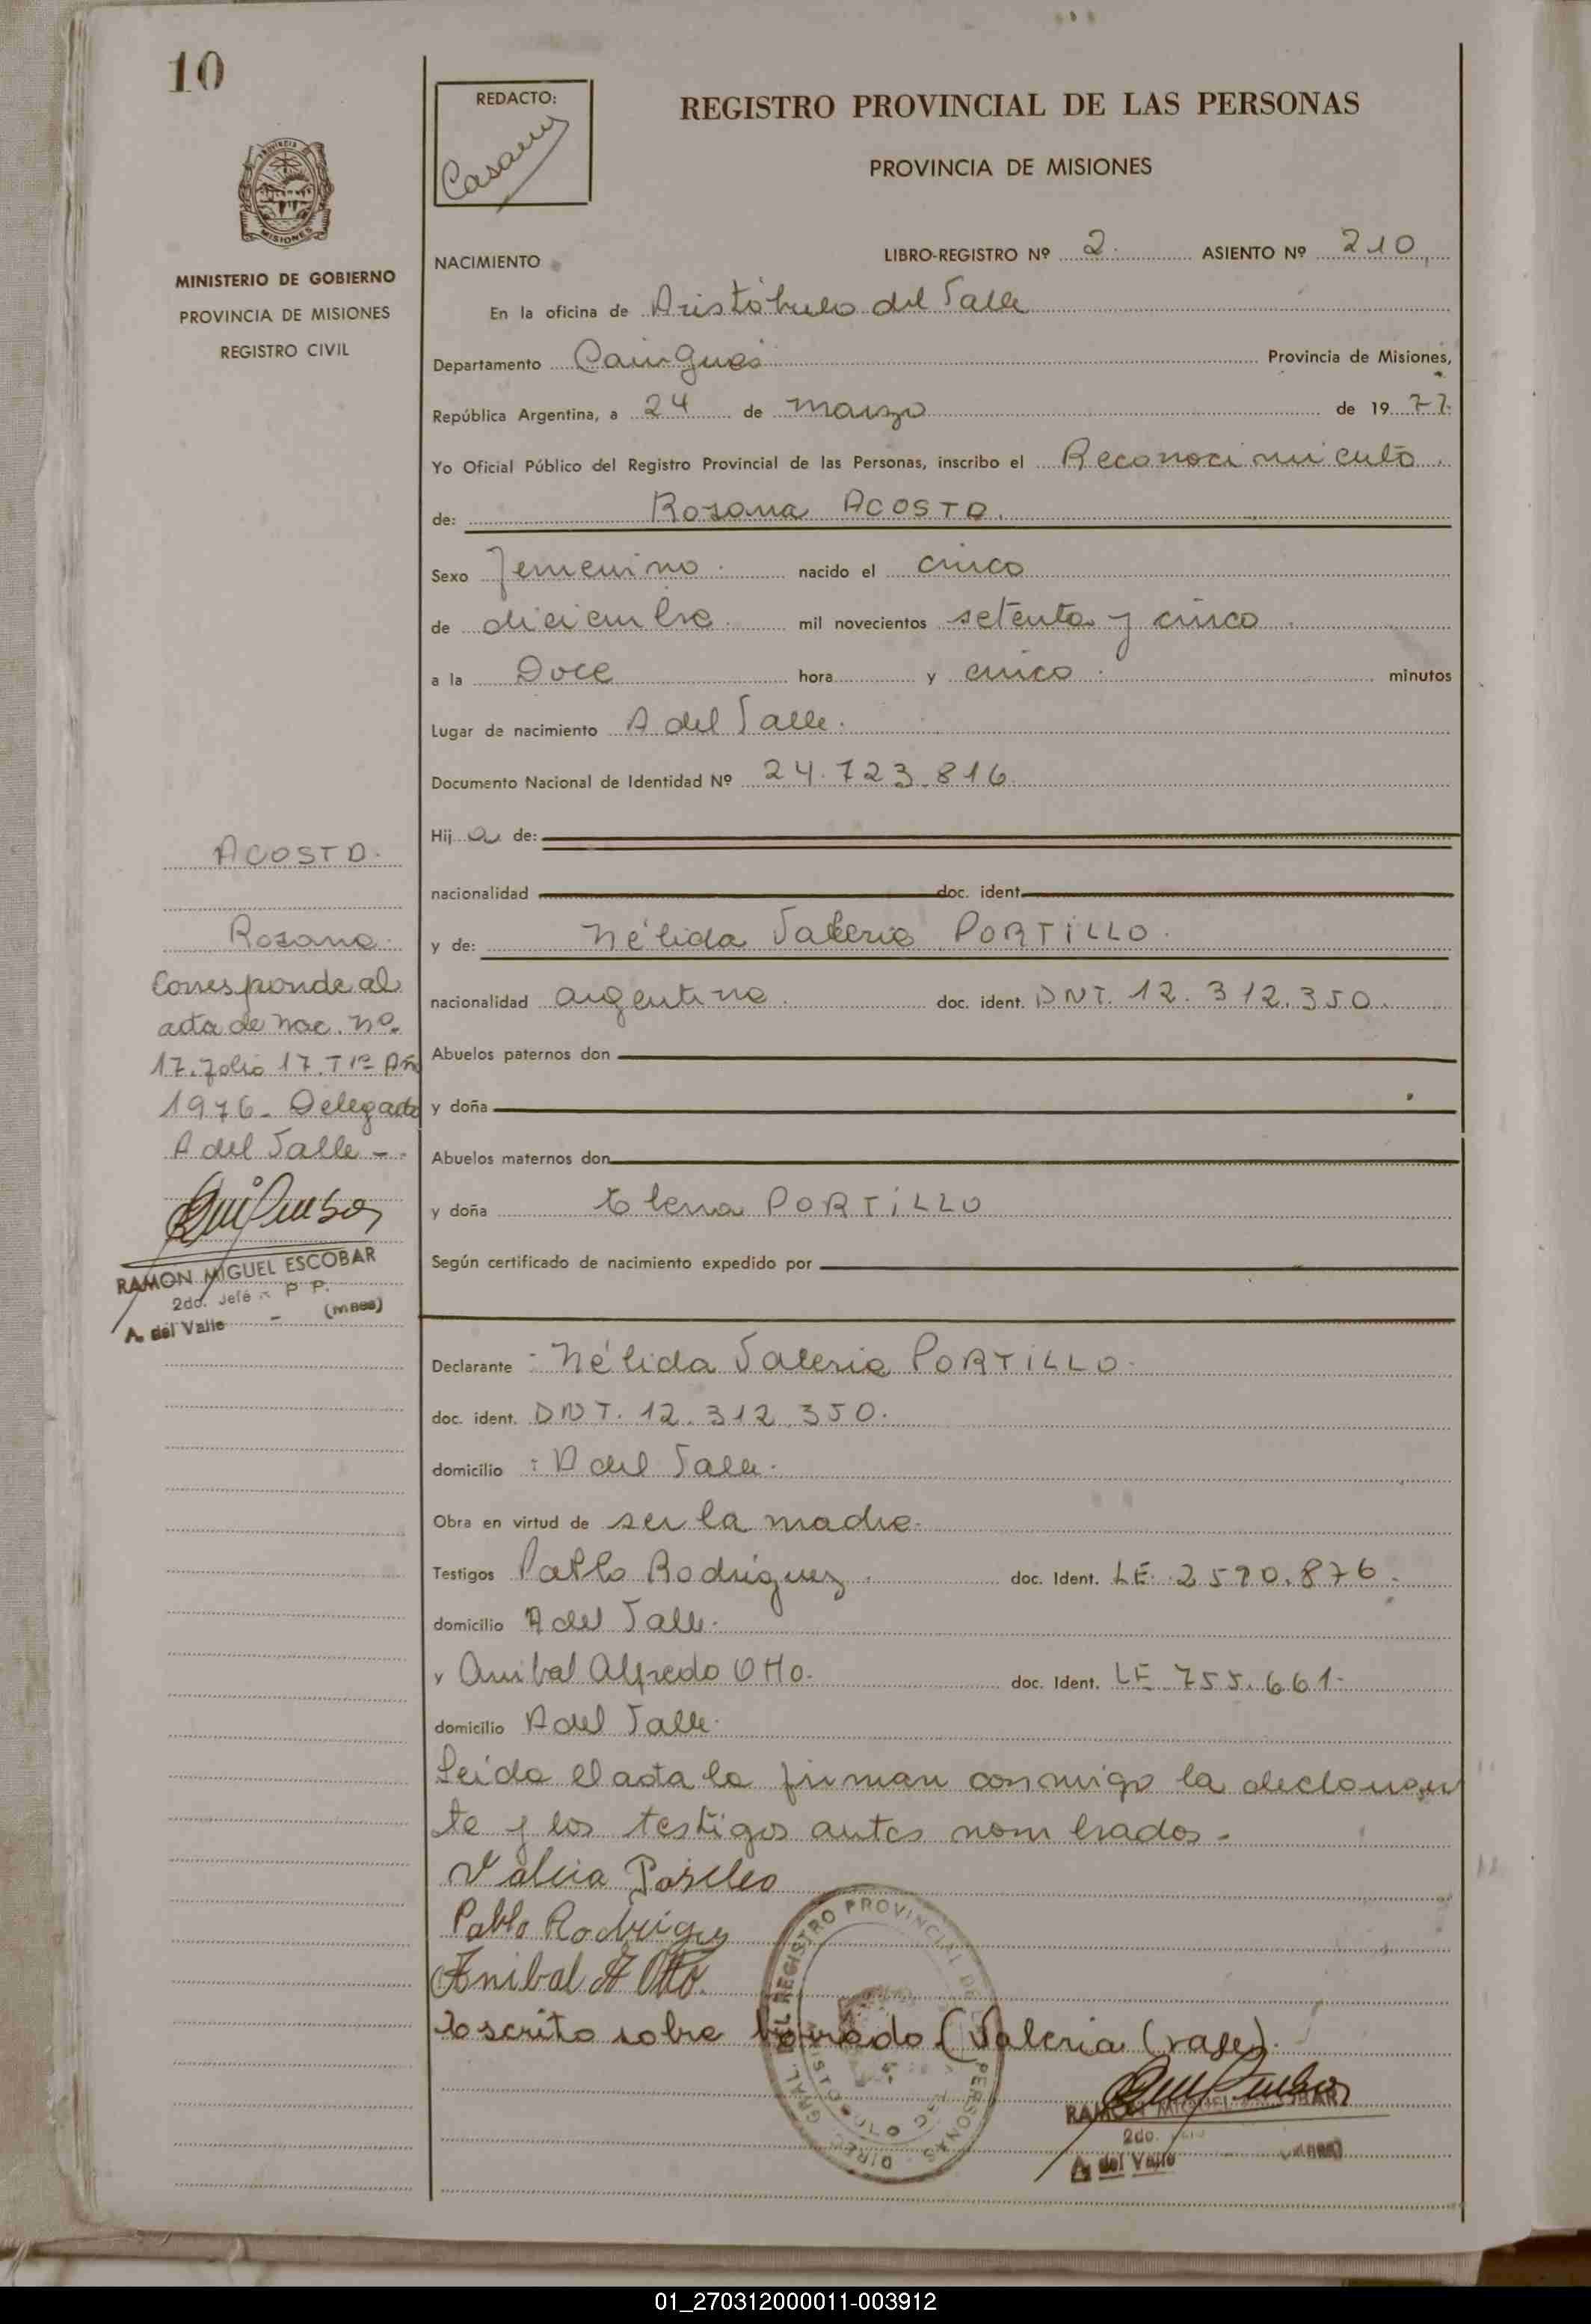 10
REDACTO:
Casany
REGISTRO PROVINCIAL DE LAS PERSONAS
PROVINCIA DE MISIONES
MISIONES
MINISTERIO DE GOBIERNO
PROVINCIA DE MISIONES
REGISTRO CIVIL
NACIMIENTO LIBRO-REGISTRO Nº 2. ASIENTO Nº 210
En la oficina de Aristóbulo del Valle
Departamento Cainguás Provincia de Misiones,
República Argentina, a 24 de marzo de 19 77
Yo Oficial Público del Registro Provincial de las Personas, inscribo el Reconocimiento.
de: Rosana ACOSTA.
Sexo femenino. nacido el cinco
de diciembre. mil novecientos setenta y cinco.
a la Doce hora y cinco. minutos
Lugar de nacimiento A del Valle.
Documento Nacional de Identidad Nº 24.723.816.
Hij a de:
nacionalidad doc. ident.
y de: Nélida Valeria PORTILLO.
nacionalidad argentina. doc. ident. DNI. 12.312.350.
Abuelos paternos don
y doña
Abuelos maternos don
y doña Elena PORTILLO
Según certificado de nacimiento expedido por
Declarante : Nélida Valeria PORTILLO.
doc. ident. DNI. 12.312.350.
domicilio : A del Valle.
Obra en virtud de ser la madre.
Testigos Pablo Rodriguez. doc. Ident. LE. 2590.876.
domicilio A del Valle.
y Anibal Alfredo Otto. doc. Ident. LE 755.661.
domicilio A del Valle.
Leida el acta la firman conmigo la declaran
te y los testigos antes nombrados.
Pablo Rodriguez
Anibal A Otto.
Escrito sobre borrado (Valeria (vale).
DIREC. GRAL. DEL REGISTRO PROVINCIAL DE PERSONAS
RAMON MIGUEL ESCOBAR
2do.
A. del Valle
ACOSTA.
Rosana.
Corresponde al
acta de nac. nº
17. folio 17. Tº 1º Año
1976. Delegado
A del Valle -.
RAMON MIGUEL ESCOBAR
2do. Jefe R P P.
A. del Valle - (mnes)
01_270312000011-003912